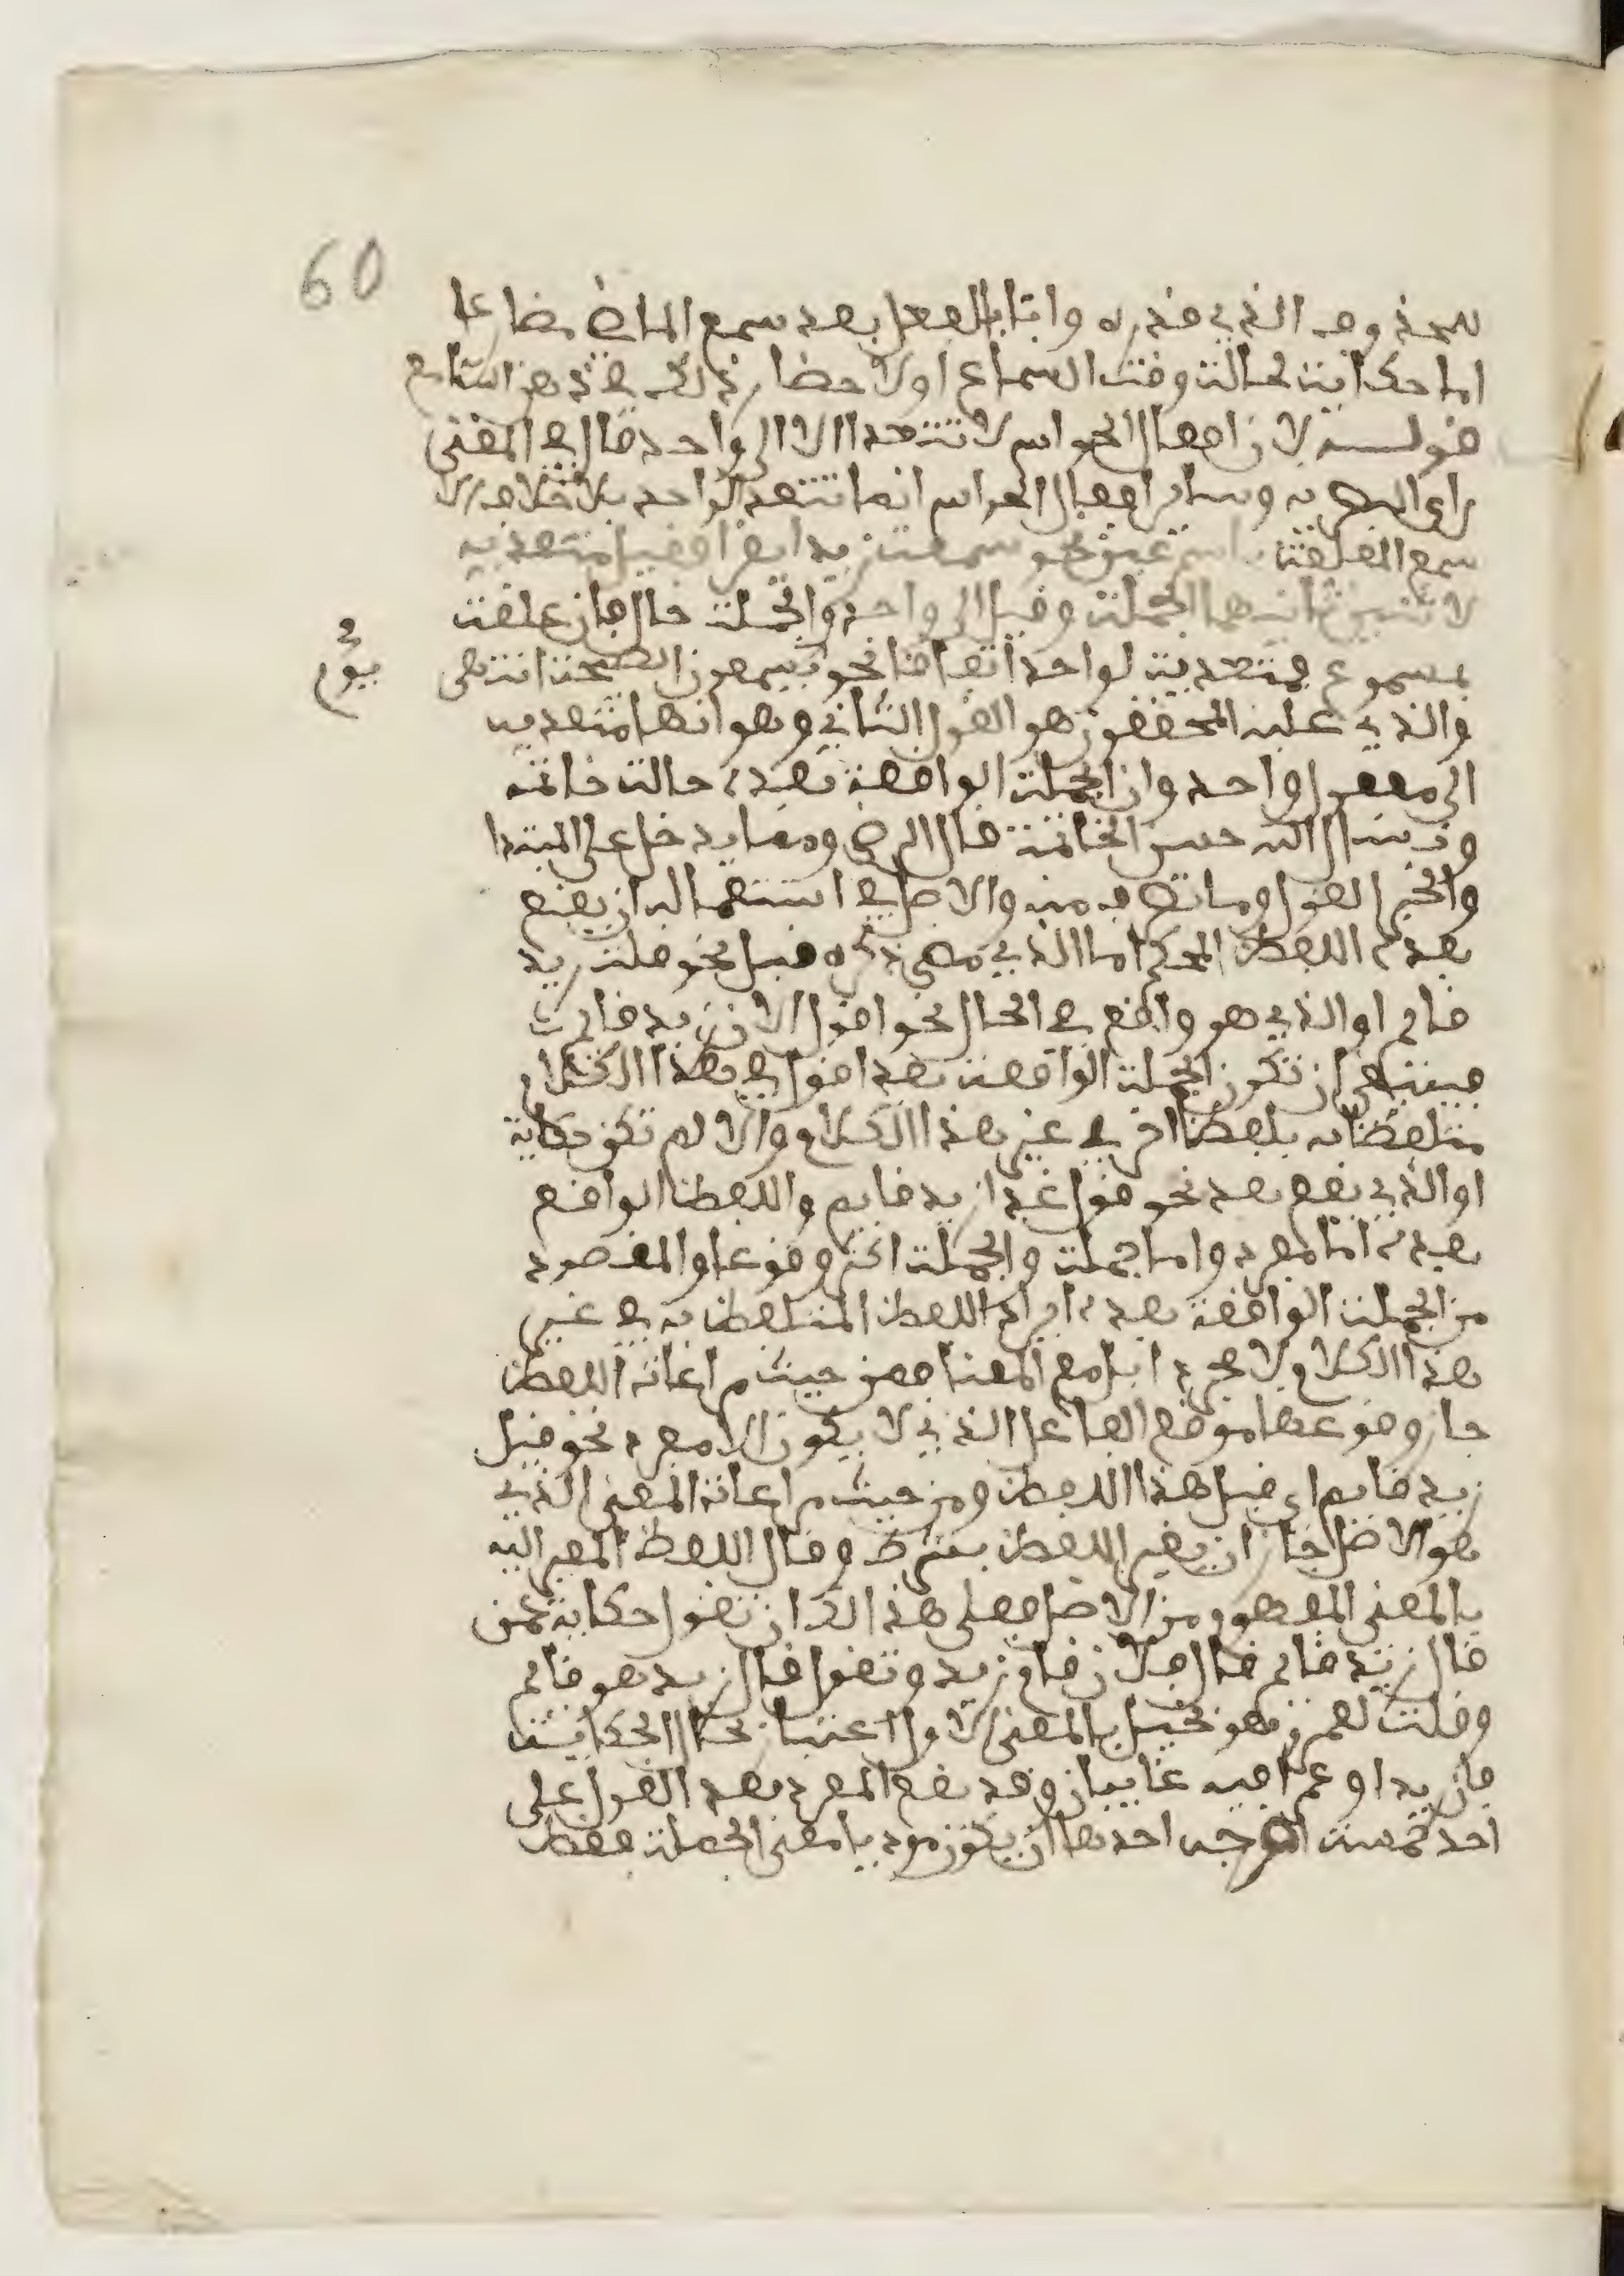 60
للمحذوف الذي قدره واتيا بالفعل بعد سمع الماض مضارعا
اما حكاية لحالة وقت السماع او لاحضار ذلك في ذهن السامع
قولــه لان افعال الحواس لا تتعدا الا الى واحد قال في المغني
راي البصرية وساير افعال الحواس انما تتعد لواحد بلا خلاف الا
سمع المعلقة باسم عين نحو سمعت زيدا يقرا فقيل متعدية
لاثنين ثانيهما الجملة وقيل الى واحد والجملة حال فان علقت
بمسموع فمتعدية لواحد اتفاقا نحو يسمعون الصيحة انتهى
يوم
والذي عليه المحققون هو القول الثاني وهو انها متعدية
الى مفعول واحد وان الجملة الواقعة بعده حالة خاتمة
ونسال الله حسن الخاتمة قال الرضي ومما يدخل على المبتدا
والخبر القول وما تصرف منه والاصل في استعماله ان يقع
بعده اللفظ المحكي اما الذي مضى ذكره قبل نحو قلت زيد
قايم او الذي هو واقع في الحال نحو اقول الان زيد قايم
فينبغي ان تكون الجملة الواقعة بعد اقول في هذا الكلام
متلفظا به بلفظ اخر في غير هذا الكلام والا لم تكن حكاية
او الذي يقع بعد نحو قول غدا زيد قايم واللفظ الواقع
بعده اما مفرد واما جملة والجملة اكثر وقوعا والمقصود
من الجملة الواقعة بعده ايراد اللفظ المتلفظ به في غير
هذا الكلام لا مجردا بل مع المعنا فمن حيث مراعاة اللفظ
جاز وقوعها موقع الفاعل الذي لا يكون الا مفرد نحو قيل
زيد قايم اي قيل هذا اللفظ ومن حيث مراعاة المعنى الذي
هو الاصل جاز ان يغير اللفظ بشرط وقال اللفظ المغير اليه
بالمعنى المفهوم من الاصل فعلى هذا لك ان تقول حكاية عمن
قال زيد قايم قال فلان قام زيد وتقول قال زيد هو قايم
وقلت لعمرو هو نخيل بالمعنى الاول اعتبارا بحال الحكاية
فان زيدا وعمرا فيه غايبان وقد يقع المفرد بعد القول على
احد خمسة اوجه احدها ان يكون موديا معنى الجملة فقط